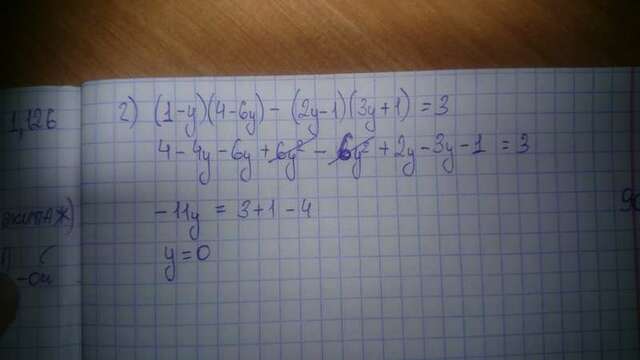 2) (1-y)(4-6y) - (2y-1)(3y+1) = 3
4-4y-6y+6y²-6y²+2y-3y-1 = 3
-11y = 3+1-4
y=0